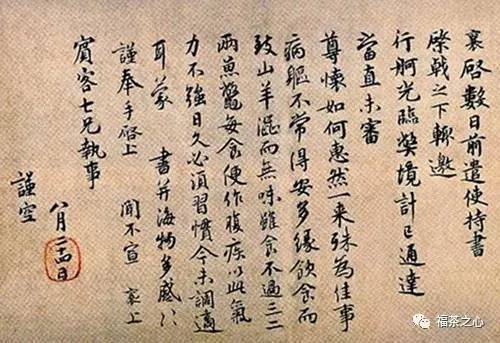 襄啓數日前遣使持書
棨戟之下輒邀
行舸光臨弊境計已通達
當直未審
尊懷如何惠然一来殊為佳事
病軀不常得安多緣飲食而
致山羊澀而無味雖食不過三二
兩魚鼈每食便作腹疾以此氣
力不強日久必須習慣今未調適
耳蒙 書并海物多感〻
謹奉手啓上 聞不宣 襄上
賓客七兄執事
八月二四日
謹空
福茶之心